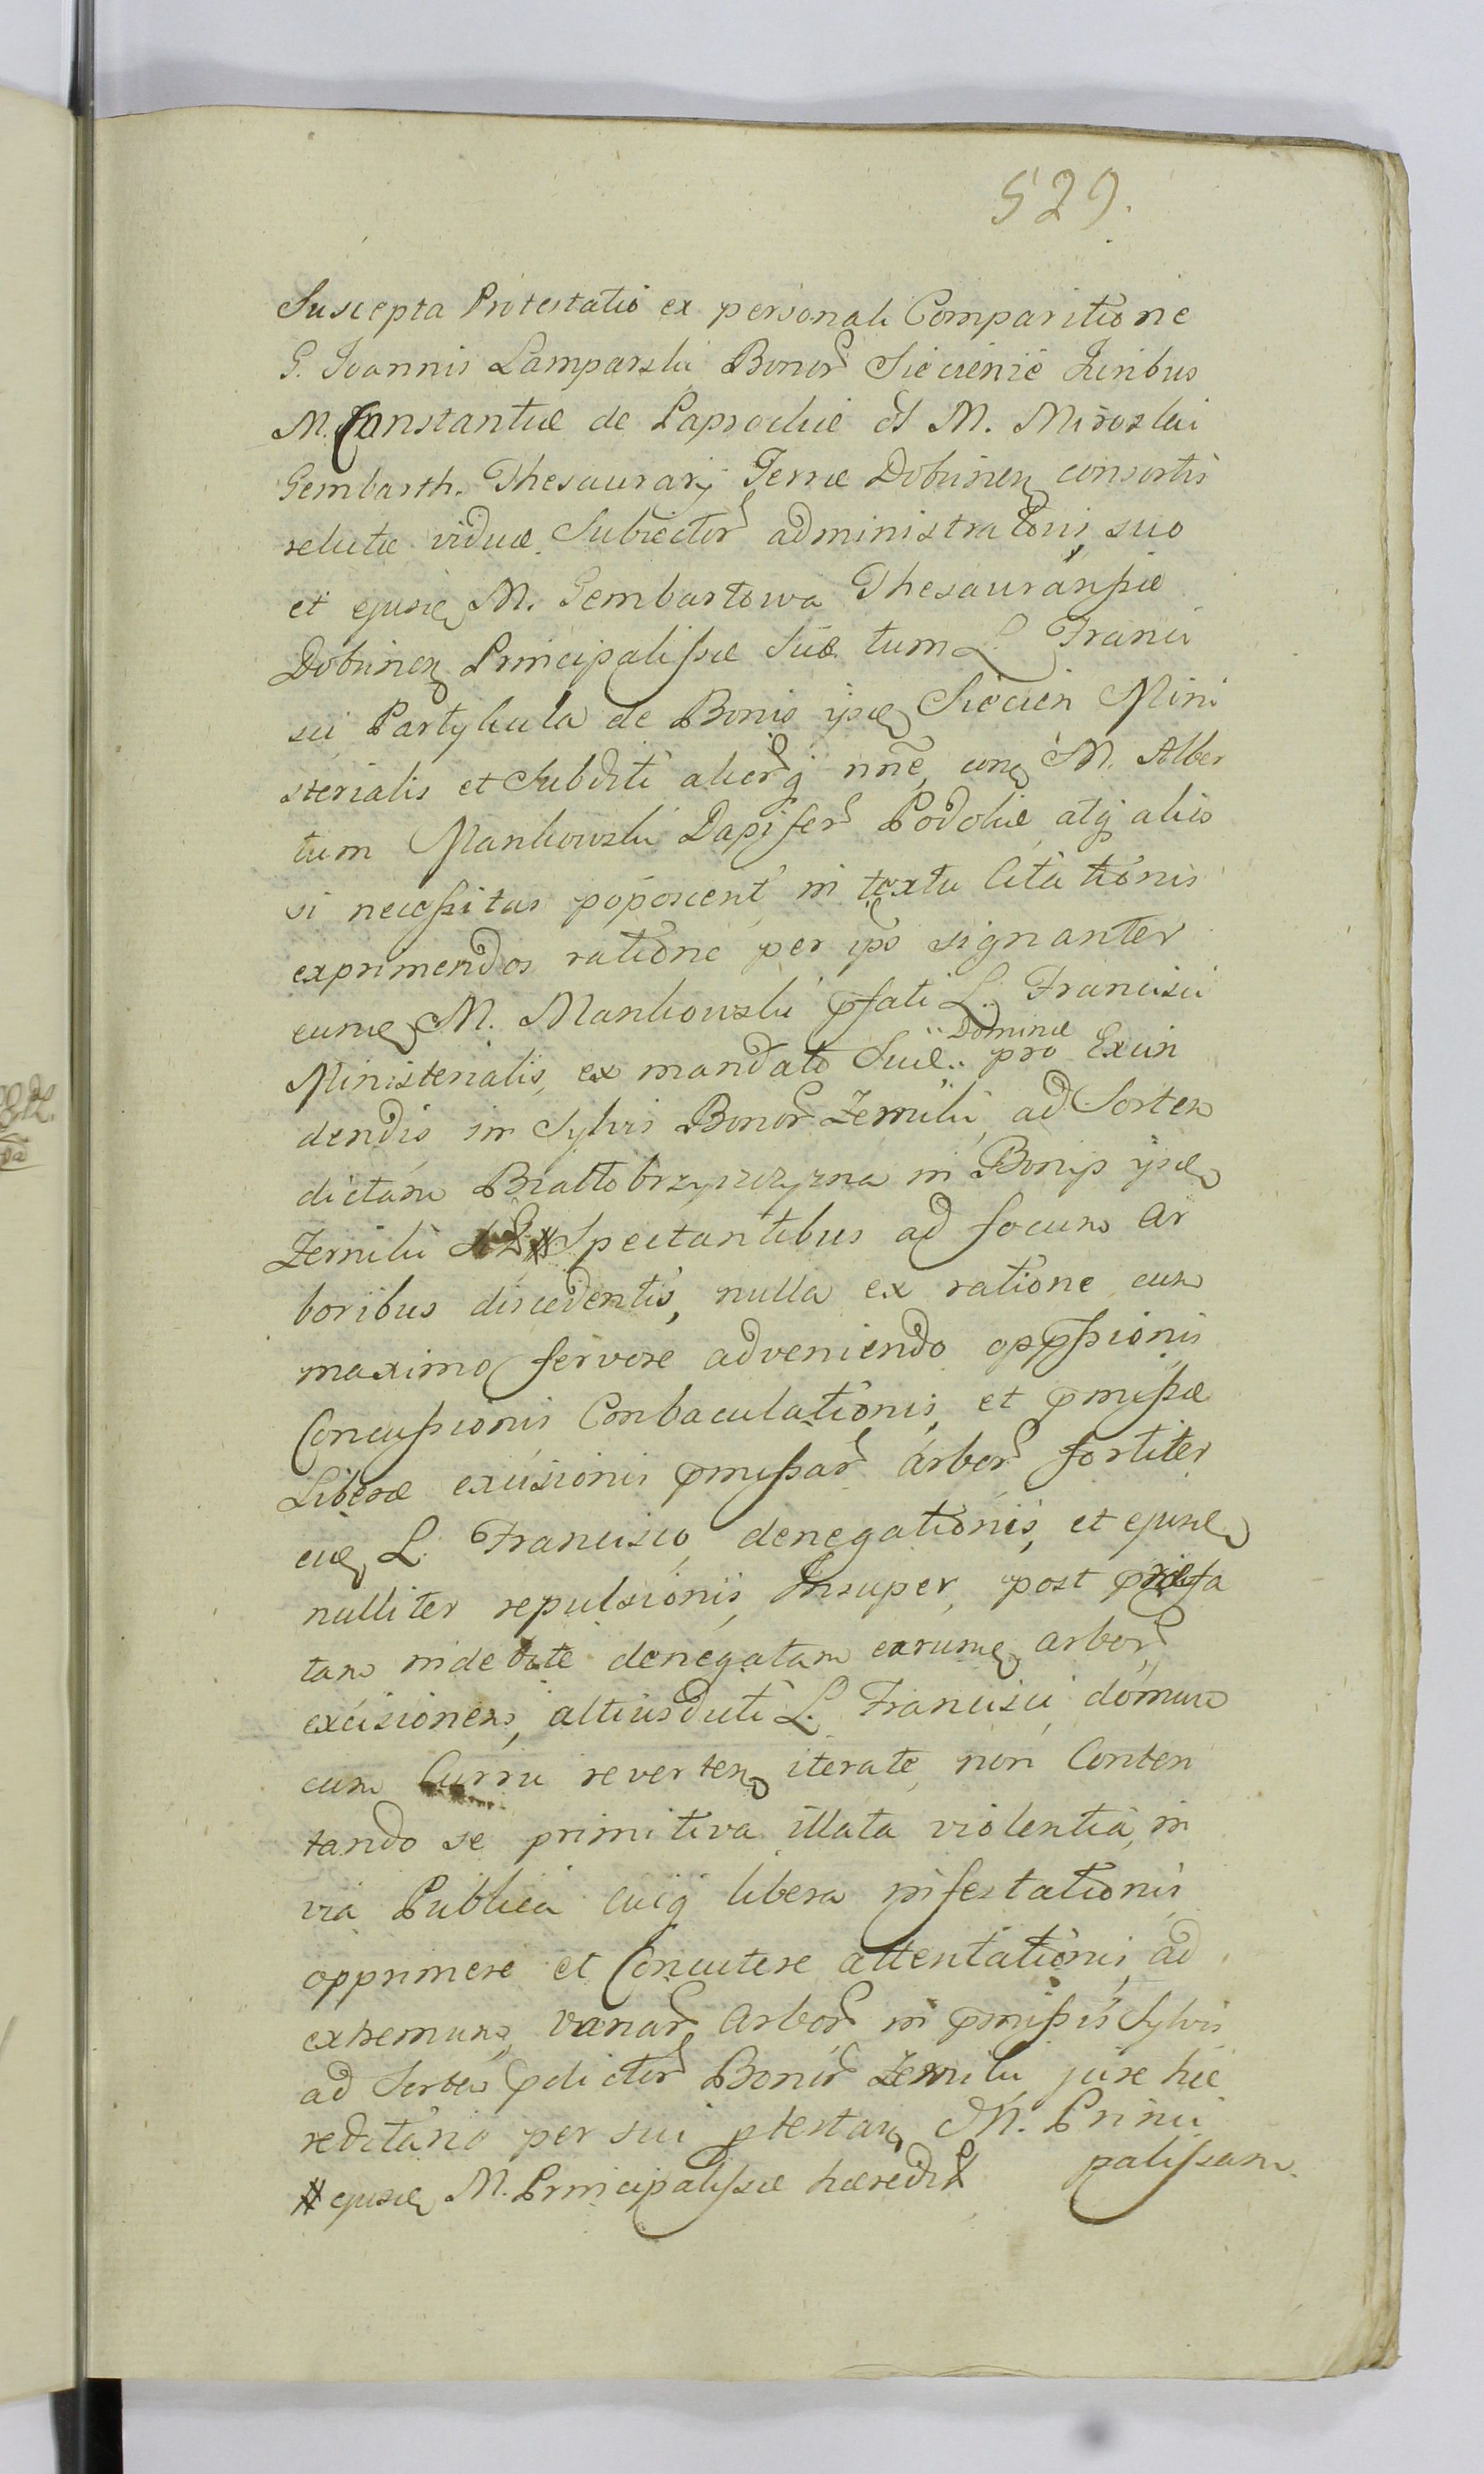 529.
Suscepta Protestatio ex personali Comparitione
G. Joannis Lamparski Bonor Siecienie Juribus
M. Constantiæ de Paprockie M. Mirosłai
Gembarth. Thesaurarij Terræ Dobrinen consortis
relictæ viduæ Subiector administratoris, suo
et ejusd M. Gembartowa Thesaurarissæ
Dobrinen Principalissæ Suæ tum L. Franci
sci Partykuła de Bonis ijsd Siecien Mini
sterialis et Subditi alior q nne, con M. Alber
tum Mankowski Dapifer Podoliæ atq alios
si necessitas poposcerit in textu Citationis
exprimendos ratione per ipso signanter
eund M. Mankowski pfati L. Francisci
Dominæ
Ministerialis, ex mandato Suæ pro Excin
dendis in Sylvis Bonor Zernik, ad Sortem
dictam Białłobrzyszczyzna in Bonis ijsd
Zerniki # Spectantibus ad focum Ar
boribus discedentis, nulla ex ratione cum
maximo fervore adveniendo oppssionis
Concussionis Conbaculationis, et pmissæ
Liberæ excisionis pmissar arbor fortiter
eid L. Francisco, denegationis, et ejusd
nulliter repulsionis, Insuper, post præfa
tam indebite denegatam earumd arbor
excisionem, altius duti L. Francisci domum
cum Curru reverten iterate, non Conten
tando se primitiva illata violentia, in
via Publica cuiq libera infestationis
opprimere et Concutere attentationis, ad
extremum, variar Arbor in pmissis Sylvis
ad Sortem pdictor Bonor Zerniki jure hæ
reditario per sui ptestan M. Princi
palissam
# ejusd M. Principalissæ hæredit